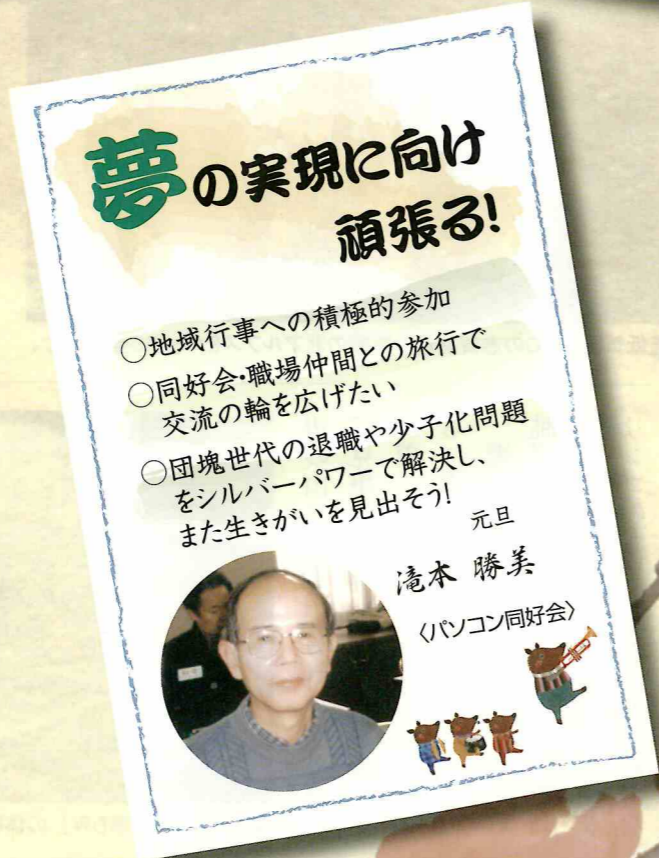 夢の実現に向け
頑張る!
○地域行事への積極的参加
○同好会・職場仲間との旅行で
交流の輪を広げたい
○団塊世代の退職や少子化問題
をシルバーパワーで解決し、
また生きがいを見出そう!
元旦
滝本 勝美
〈パソコン同好会〉